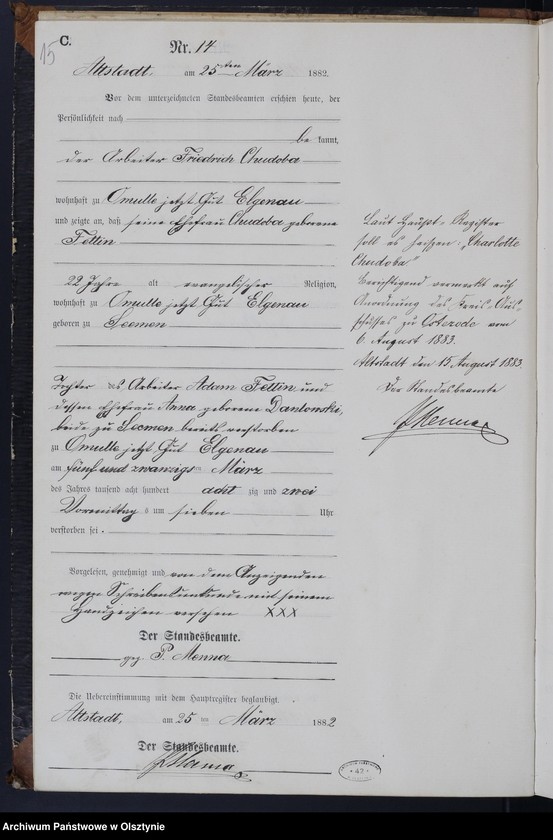 15
C.
Nr. 14
Altstadt, am 25ten März 1882.
Vor dem unterzeichneten Standesbeamten erschien heute, der
Persönlichkeit nach
be kannt,
der Arbeiter Friedrich Chudoba
wohnhaft zu Omulle jetzt Gut Elgenau
und zeigte an, daß seine Ehefrau Chudoba geborene
Fettin
22 Jahre alt evangelischer Religion,
wohnhaft zu Omulle jetzt Gut Elgenau
geboren zu Seemen
Tochter des Arbeiter Adam Fettin und
dessen Ehefrau Anna geborene Dankowski,
beide zu Seemen bereits verstorben
zu Omulle jetzt Gut Elgenau
am fünf und zwanzigs März
des Jahres tausend acht hundert acht zig und zwei
Vormittag s um sieben Uhr
verstorben sei.
Vorgelesen, genehmigt und von dem Anzeigenden
wegen Schreibensunkunde mit seinem
Handzeichen versehen XXX
Der Standesbeamte.
gez. P. Menna
Die Uebereinstimmung mit dem Hauptregister beglaubigt.
Altstadt, am 25 ten März 1882
Der Standesbeamte.
Menna
Laut Haupt-Register
soll es heißen: "Charlotte
Chudoba"
Berichtigend vermerkt auf
Anordnung des Kreis-Aus-
schusses zu Osterode vom
6. August 1883.
Altstadt den 15. August 1883.
Der Standesbeamte
Menna
* 42 *
Archiwum Państwowe w Olsztynie